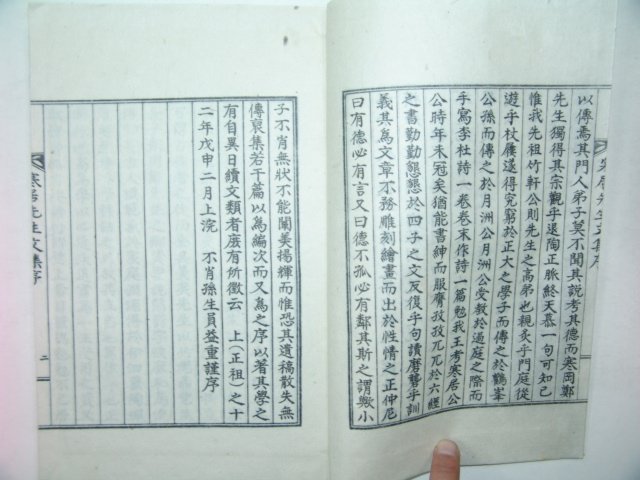 以傳焉其門人弟子莫不聞其說考其德而寒岡鄭
先生獨得其宗觀乎退陶正脉終天恭一句可知已
惟我先祖竹軒公則先生之高弟也親炙乎門庭從
遊乎杖屨遂得究竆於正大之學子而傳之於鶴峯
公孫而傳之於月洲公月洲公受教於過庭之際而
手寫李杜詩一卷卷末作詩一篇勉我王考寒居公
公時年未冠矣猶能書紳而服膺孜孜兀兀於六經
之書勤勤懇懇於四子之文反復乎句讀磨礱乎訓
義其為文章不務雕刻繪畫而出於性情之正仲尼
曰有德必有言又曰德不孤必有鄰其斯之謂歟小
寒居先生文集序
子不肖無狀不能闡美揚輝而惟恐其遺稿散失無
傳裒集若干篇以為編次而又為之序以著其學之
有自異日續文類者庶有所徵云 上(正祖)之十
二年戊申二月上浣 不肖孫生員益重謹序
寒居先生文集序
二